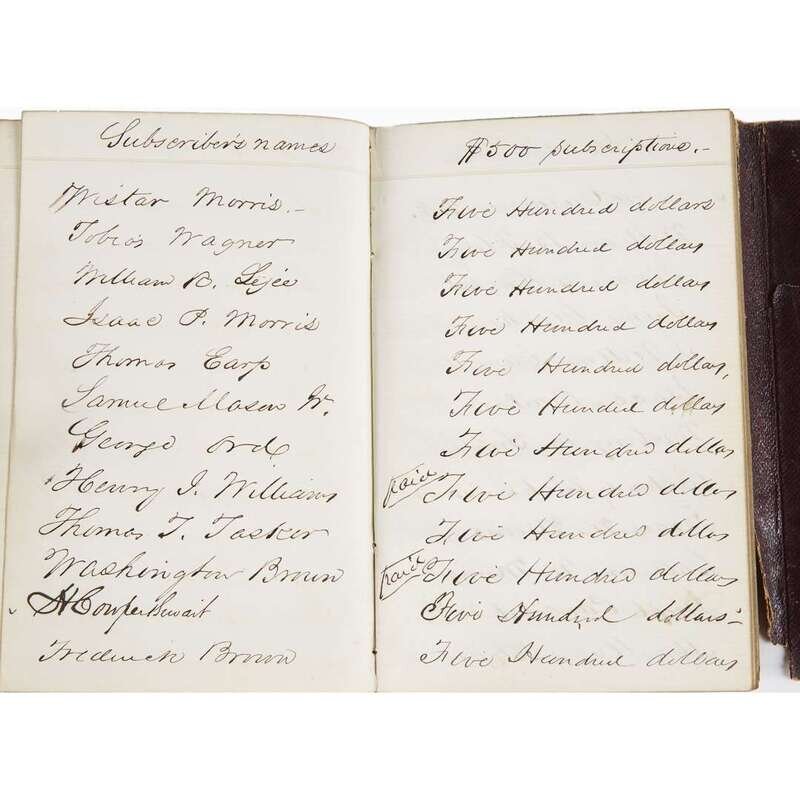 Subscriber's names
Wistar Morris.-
Tobias Wagner
William B. Lejée
Isaac P. Morris
Thomas Earp
Samuel Mason Jr.
George Ord
Henry J. Williams
Thomas T. Tasker
Washington Brown
Frederick Brown
$500 subscriptions.-
Five Hundred dollars
Five Hundred dollars
Five Hundred dollars
Five Hundred dollars
Five Hundred dollars,
Five Hundred dollars
Five Hundred dollars
paid Five Hundred dollars
Five Hundred dollars
paid Five Hundred dollars
Five Hundred dollars-
Five Hundred dollars